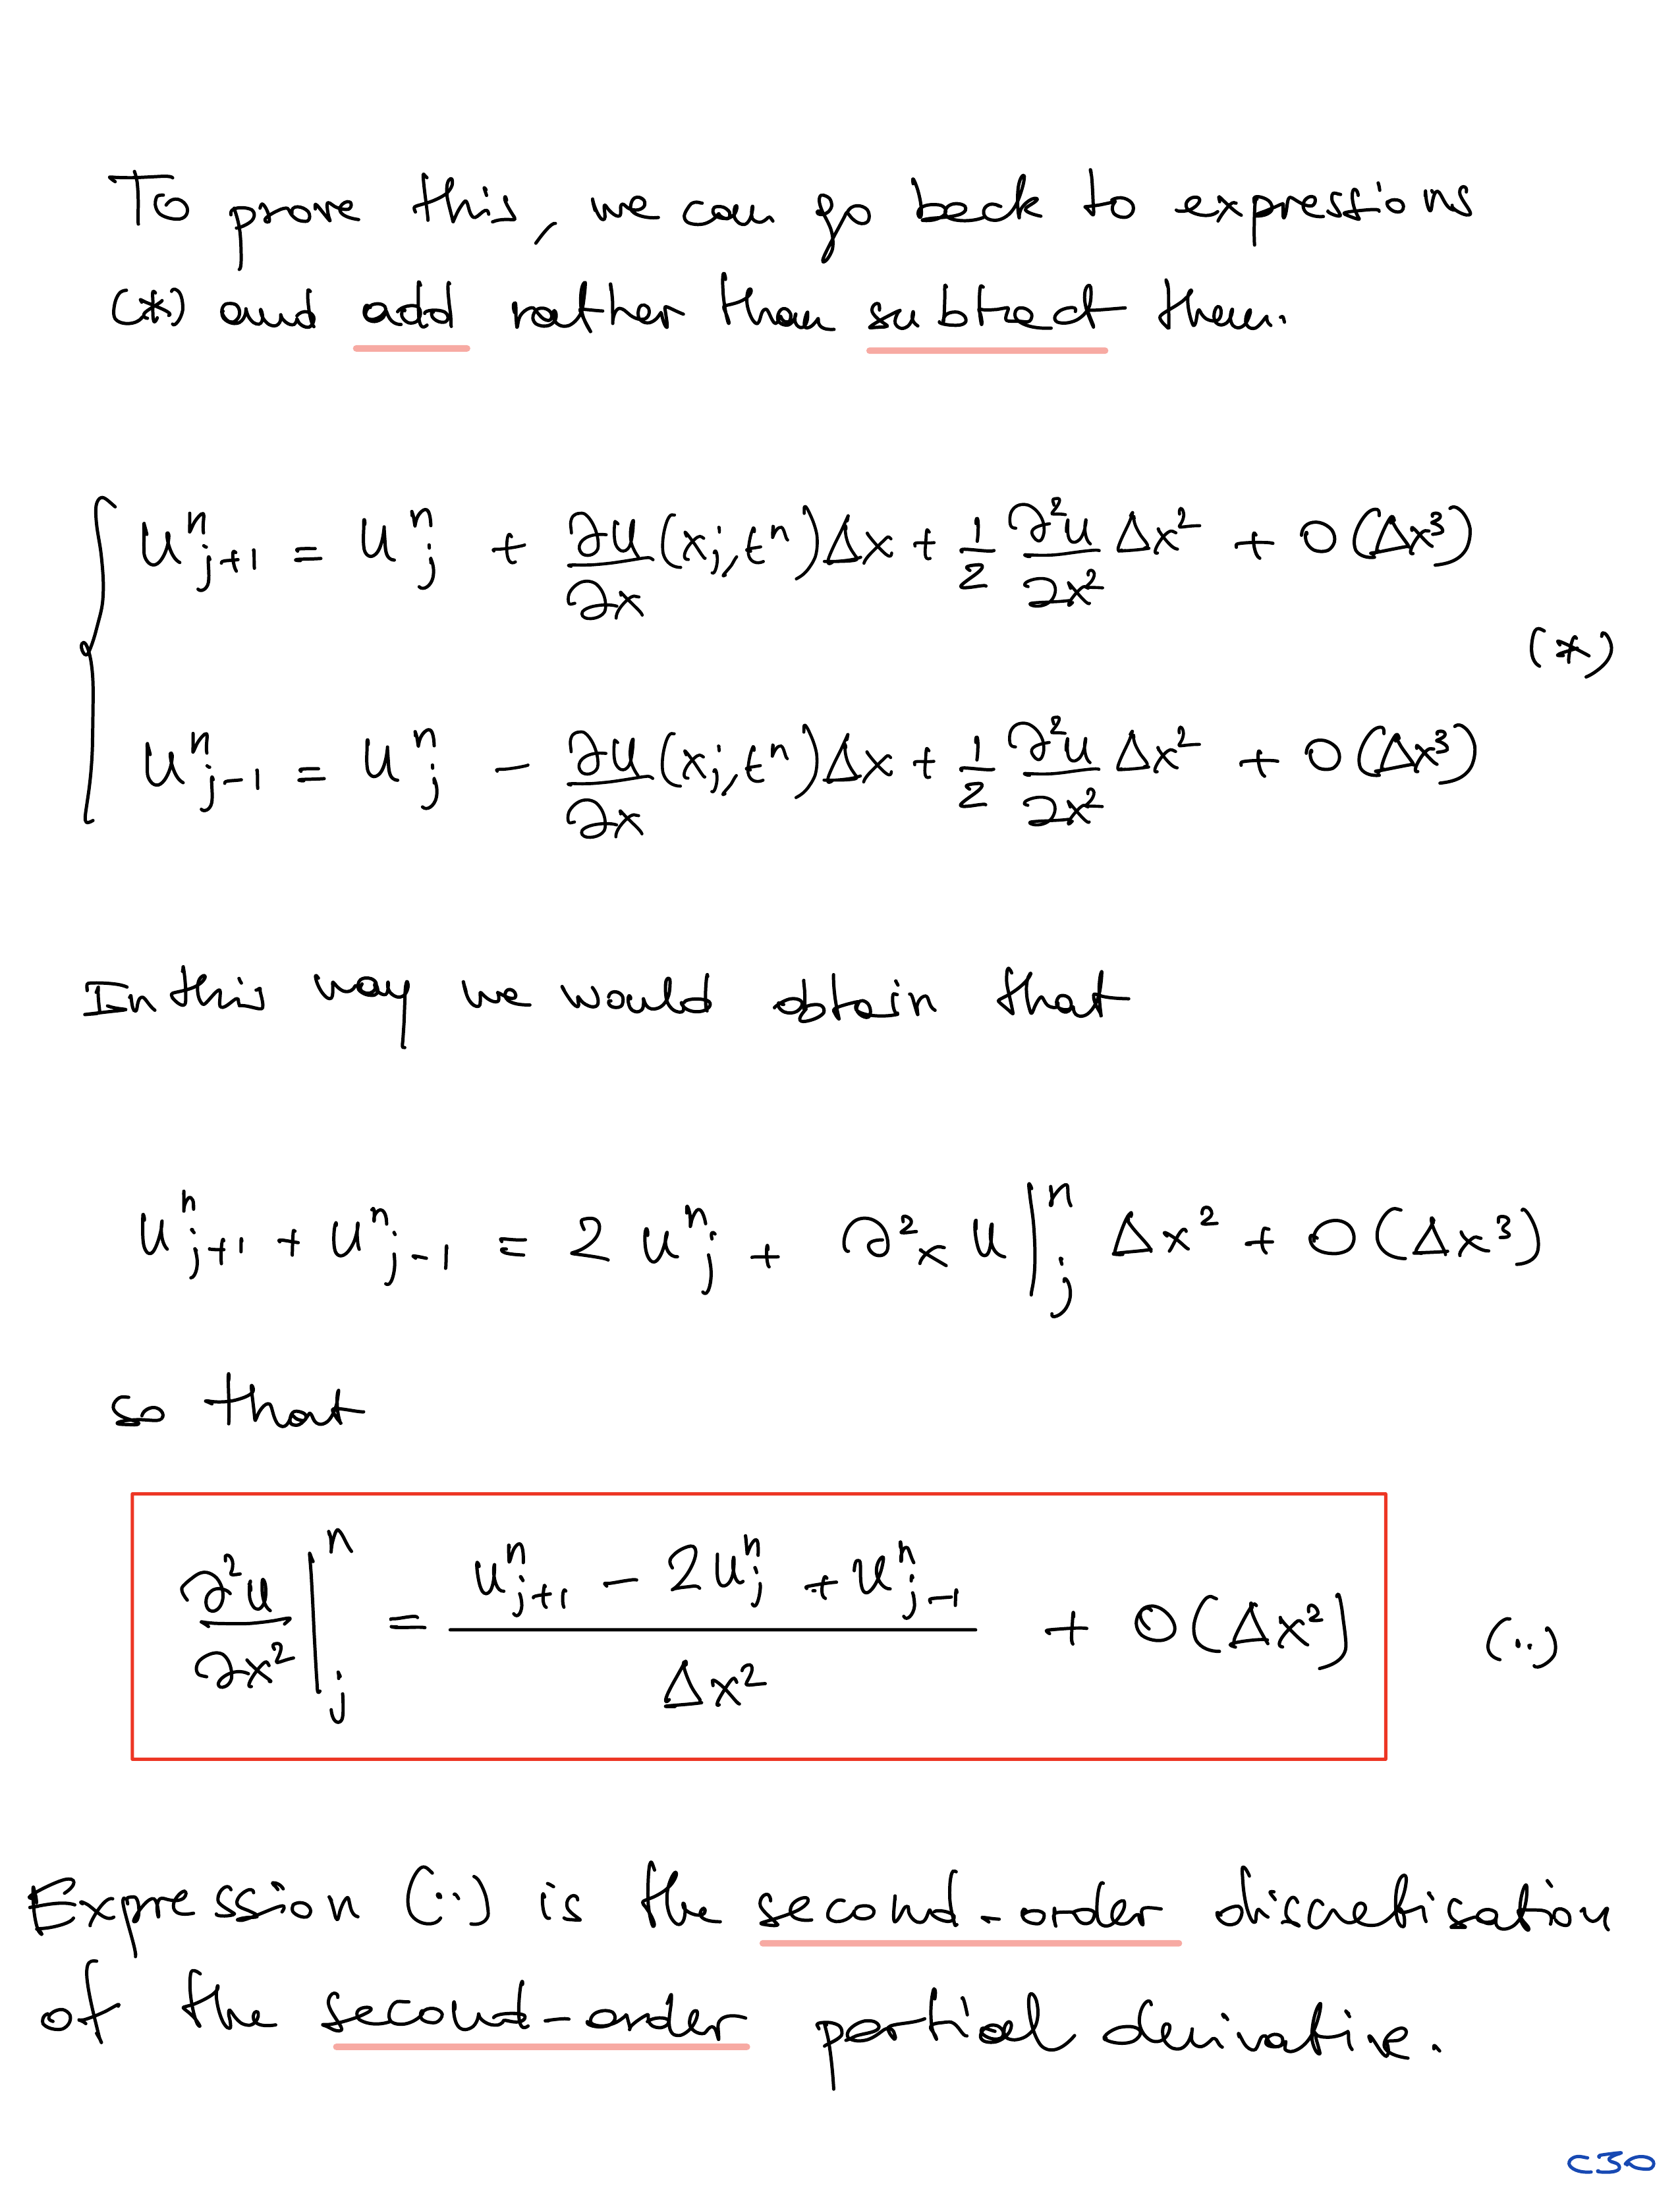 To prove this, we can go back to expressions
(*) and add rather than subtract them.
u^n_{j+1} = u^n_j + ∂u/∂x (x_j, t^n) Δx + 1/2 ∂²u/∂x² Δx² + O(Δx³)
(*)
u^n_{j-1} = u^n_j - ∂u/∂x (x_j, t^n) Δx + 1/2 ∂²u/∂x² Δx² + O(Δx³)
In this way we would obtain that
u^n_{j+1} + u^n_{j-1} = 2 u^n_j + ∂²_x u |^n_j Δx² + O(Δx³)
so that
∂²u/∂x² |^n_j = (u^n_{j+1} - 2u^n_j + u^n_{j-1}) / Δx² + O(Δx²) (..)
Expression (..) is the second-order discretisation
of the second-order partial derivative.
C30